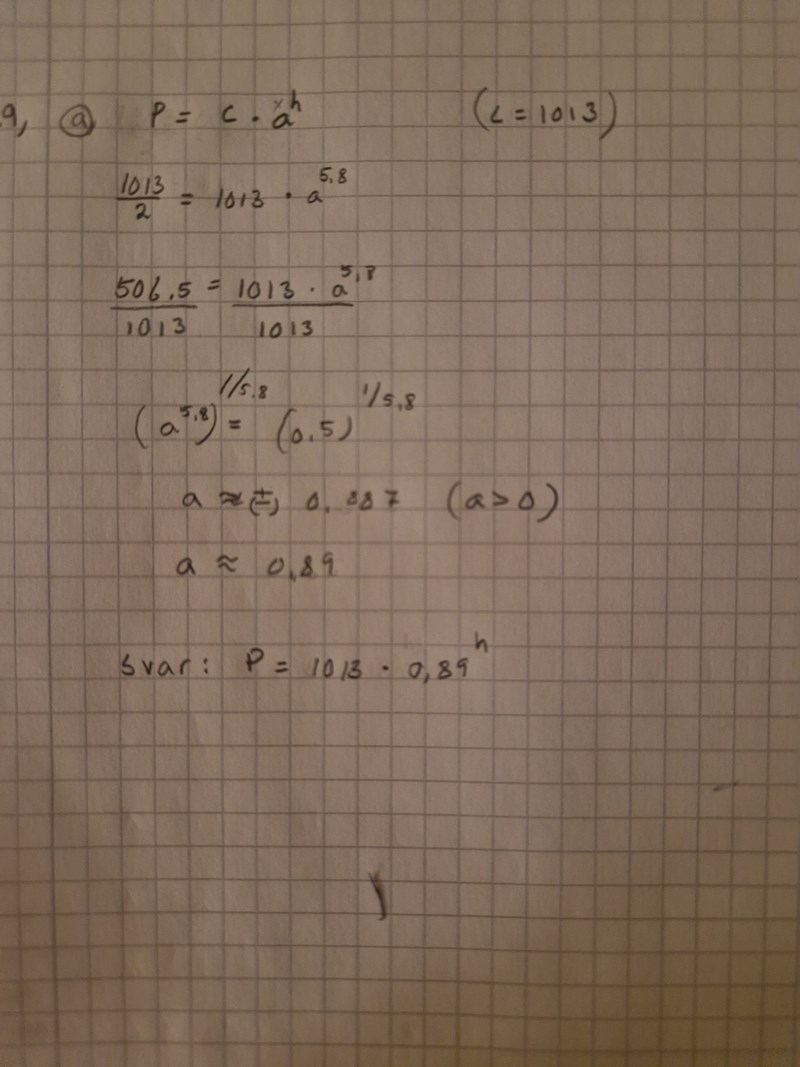 9, (a) P = C · a^h (C = 1013)
1013/2 = 1013 · a^5,8
506,5/1013 = 1013 · a^5,8/1013
(a^5,8)^1/5,8 = (0,5)^1/5,8
a ≈ (±) 0,887 (a > 0)
a ≈ 0,89
Svar: P = 1013 · 0,89^h